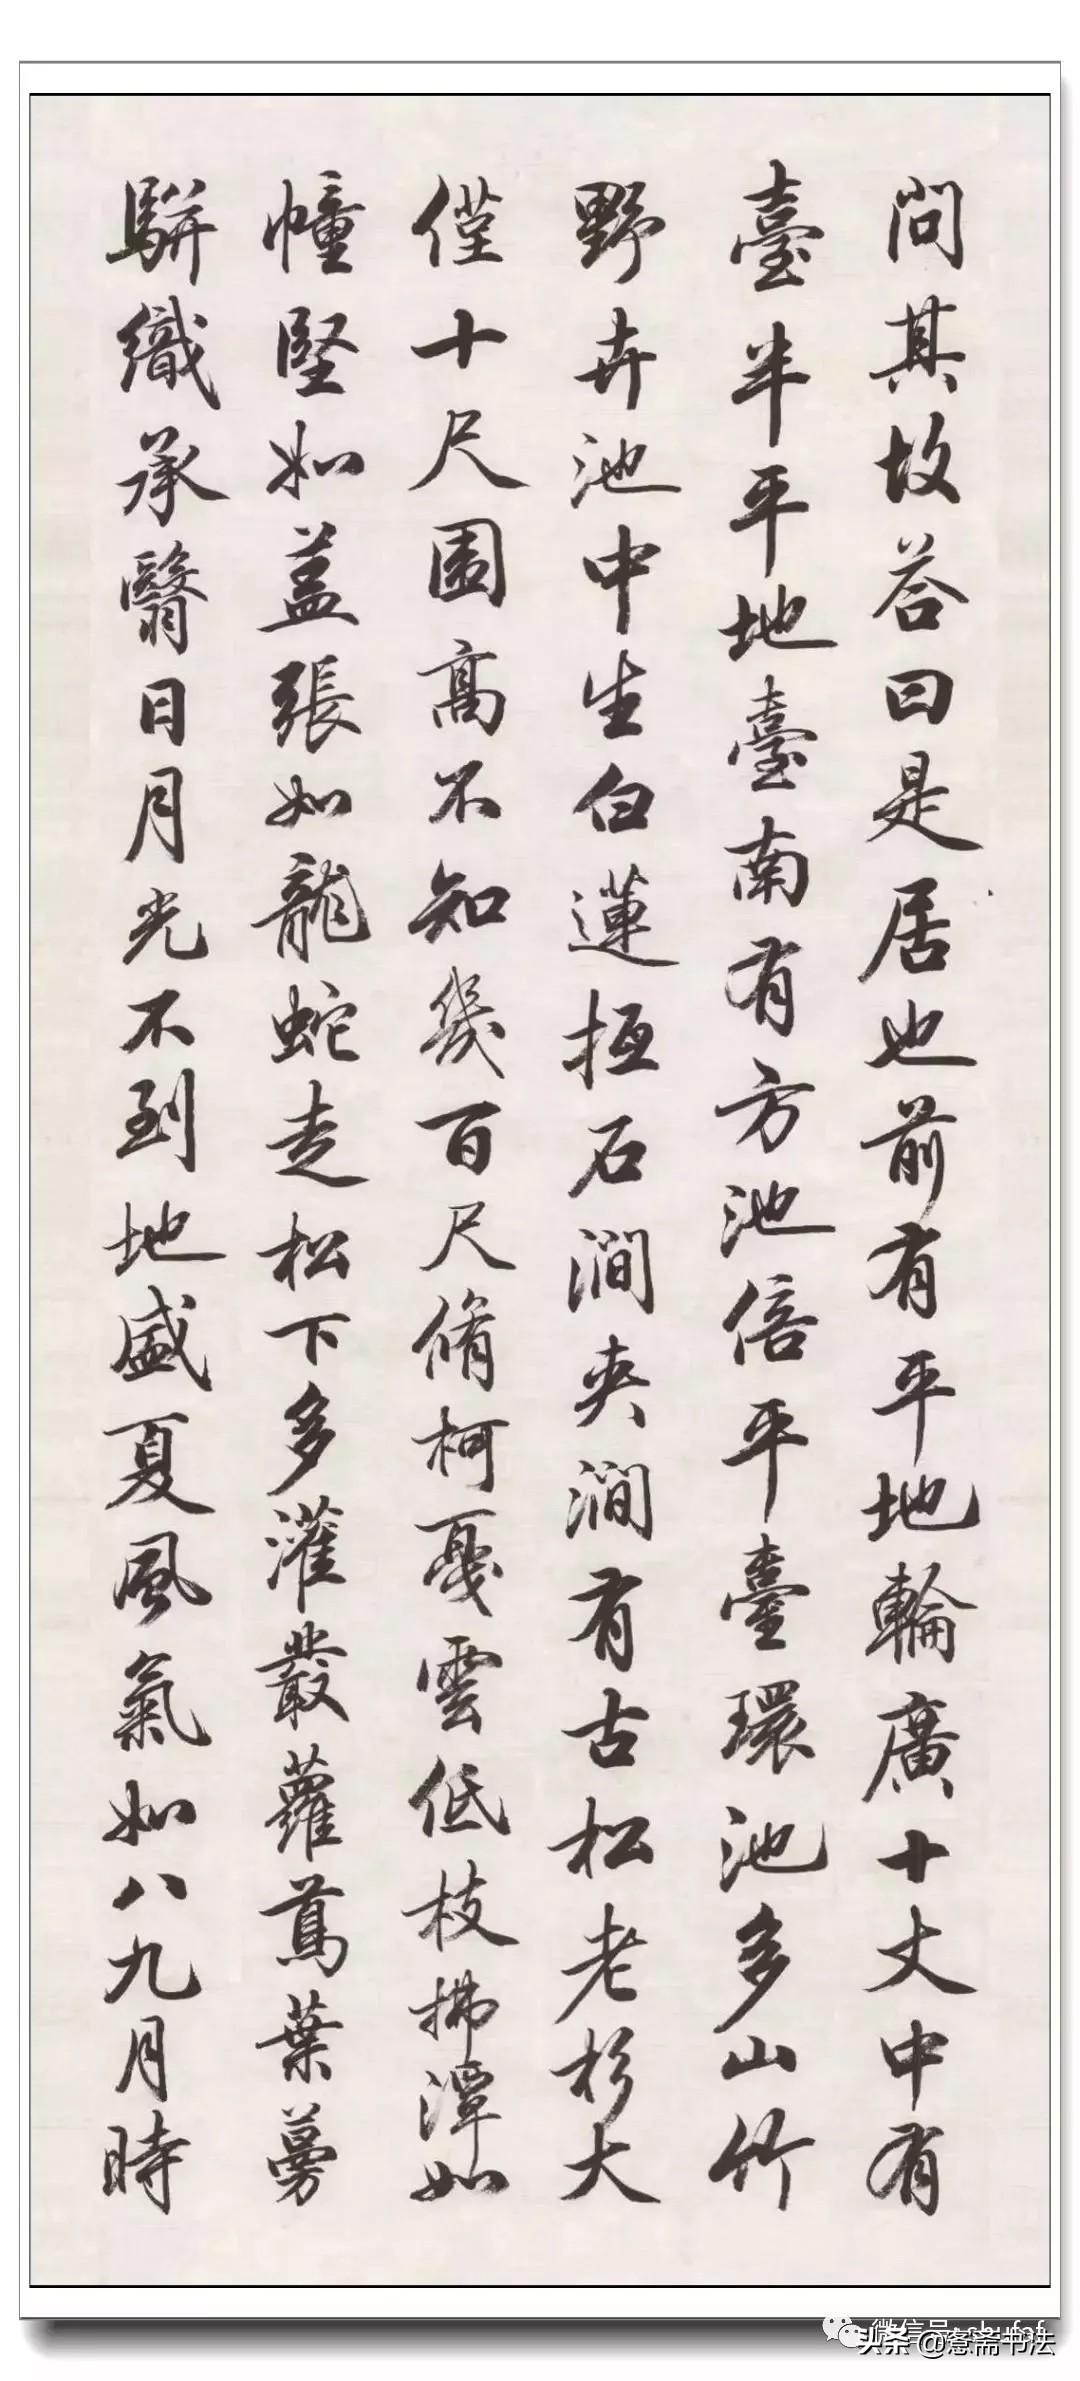 问其故荅曰是居也前有平地輪廣十丈中有
臺半平地臺南有方池倍平臺環池多山竹
野卉池中生白蓮抵石澗夾澗有古松老杉大
僅十尺圍高不知幾百尺脩柯戛雲低枝拂潭如
幢堅如蓋張如龍蛇走松下多灌叢蘿蔦葉蔓
駢織承翳日月光不到地盛夏風氣如八九月時
微信号
头条 @愙斋书法